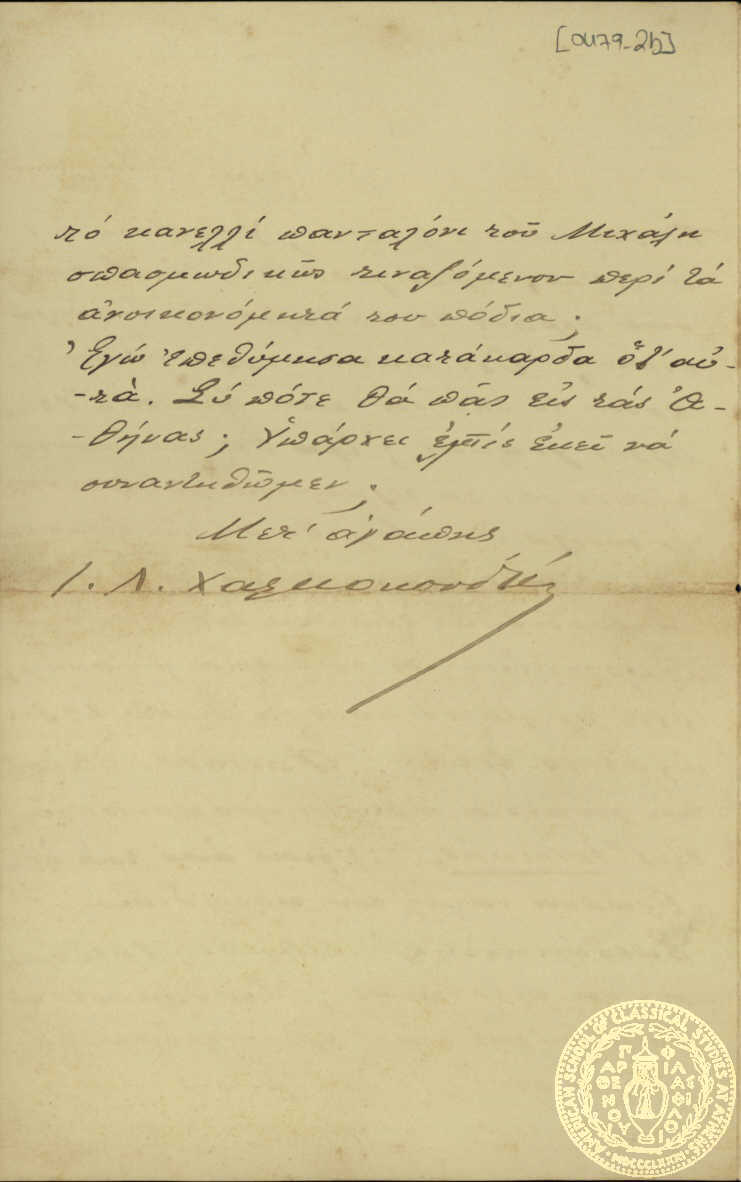 [0479-2b]
τό κανελλί πανταλόνι τοῦ Μιχάλη
σπασμωδικῶς τιναζόμενον περί τά
ἀνοικονόμητά του πόδια;
Ἐγώ ἐπεθύμησα κατάκαρδα ὅλ' αὐ-
-τὰ. Σύ πότε θά πᾶς εἰς τάς Ἀ-
-θήνας; Ὑπάρχει ἐλπίς ἐκεῖ νά
συναντηθῶμεν;
Μετ' ἀγάπης
Ι. Λ. Χαλκοκονδύλης
AMERICAN SCHOOL OF CLASSICAL STUDIES AT ATHENS
ΠΑΡΘΕΝΟΥ ΦΙΛΑΣ ΦΙΛΟΙ
MDCCCLXXXI